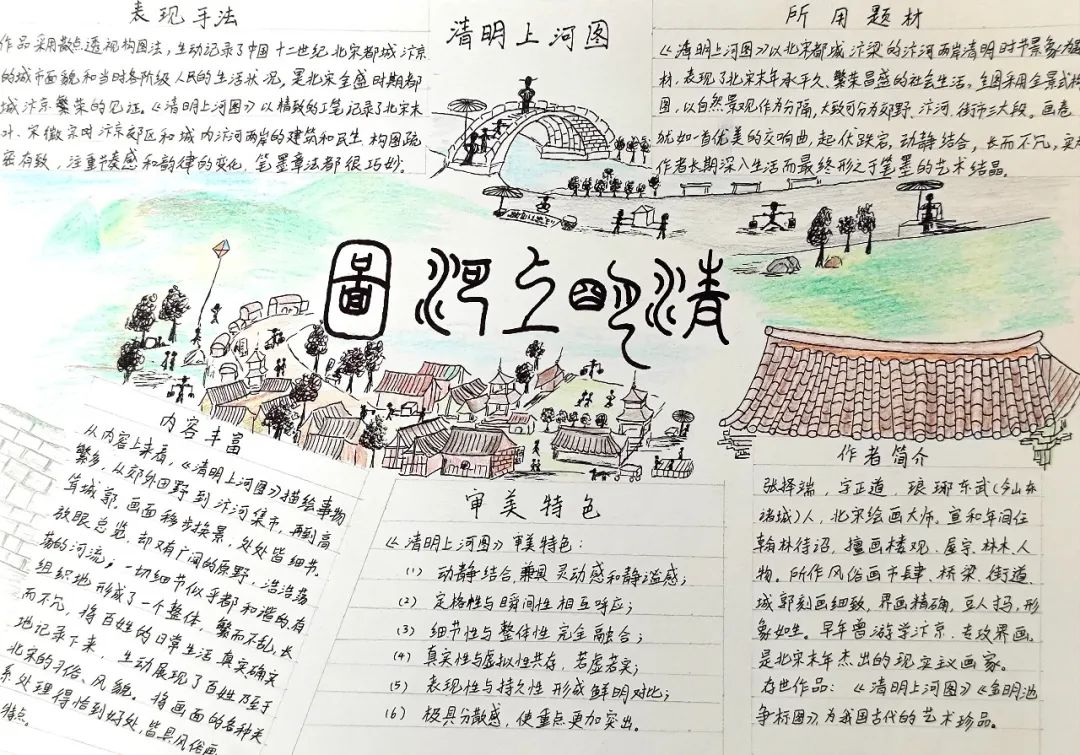 表现手法
作品采用散点透视构图法，生动记录了中国十二世纪北宋都城汴京
的城市面貌和当时各阶级人民的生活状况，是北宋全盛时期都
城汴京繁荣的见证。《清明上河图》以精致的工笔记录了北宋末
叶、宋徽宗时汴京郊区和城内汴河两岸的建筑和民生，构图疏
密有致，注重节奏感和韵律的变化，笔墨章法都很巧妙。
清明上河图
所用题材
《清明上河图》以北宋都城汴梁的汴河两岸清明时节景象为题
材，表现了北宋末年承平久、繁荣昌盛的社会生活。全图采用全景式构
图，以自然景观作为分隔，大致可分为郊野、汴河、街市三大段。画卷
就如一首优美的交响曲，起伏跌宕，动静结合，长而不冗，实为
作者长期深入生活而最终形之于笔墨的艺术结晶。
圖河上明清
内容丰富
从内容上来看，《清明上河图》描绘事物
繁多，从郊外田野到汴河集市，再到高
耸城郭。画面移步换景，处处皆细节。
放眼总览，却又有广阔的原野，浩浩荡
荡的河流；一切细节似乎都和谐的，有
组织地形成了一个整体，繁而不乱，长
而不冗，将百姓的日常生活真实确实
地记录下来，生动展现了百姓乃至于
北宋的习俗、风貌。将画面的各种关
系处理得恰到好处，皆具风俗画
特点。
审美特色
《清明上河图》审美特色：
（1）动静结合，兼具灵动感和静谧感；
（2）定格性与瞬间性相互呼应；
（3）细节性与整体性完全融合；
（4）真实性与虚拟性共存，若虚若实；
（5）表现性与持久性形成鲜明对比；
（6）极具分散感，使重点更加突出。
作者简介
张择端，字正道，琅琊东武（今山东
诸城）人，北宋绘画大师。宣和年间任
翰林待诏，擅画楼观、屋宇、林木、人
物。所作风俗画市肆、桥梁、街道、
城郭刻画细致，界画精确，豆人寸马，形
象如生。早年曾游学汴京，专攻界画。
是北宋末年杰出的现实主义画家。
存世作品：《清明上河图》《金明池
争标图》，为我国古代的艺术珍品。